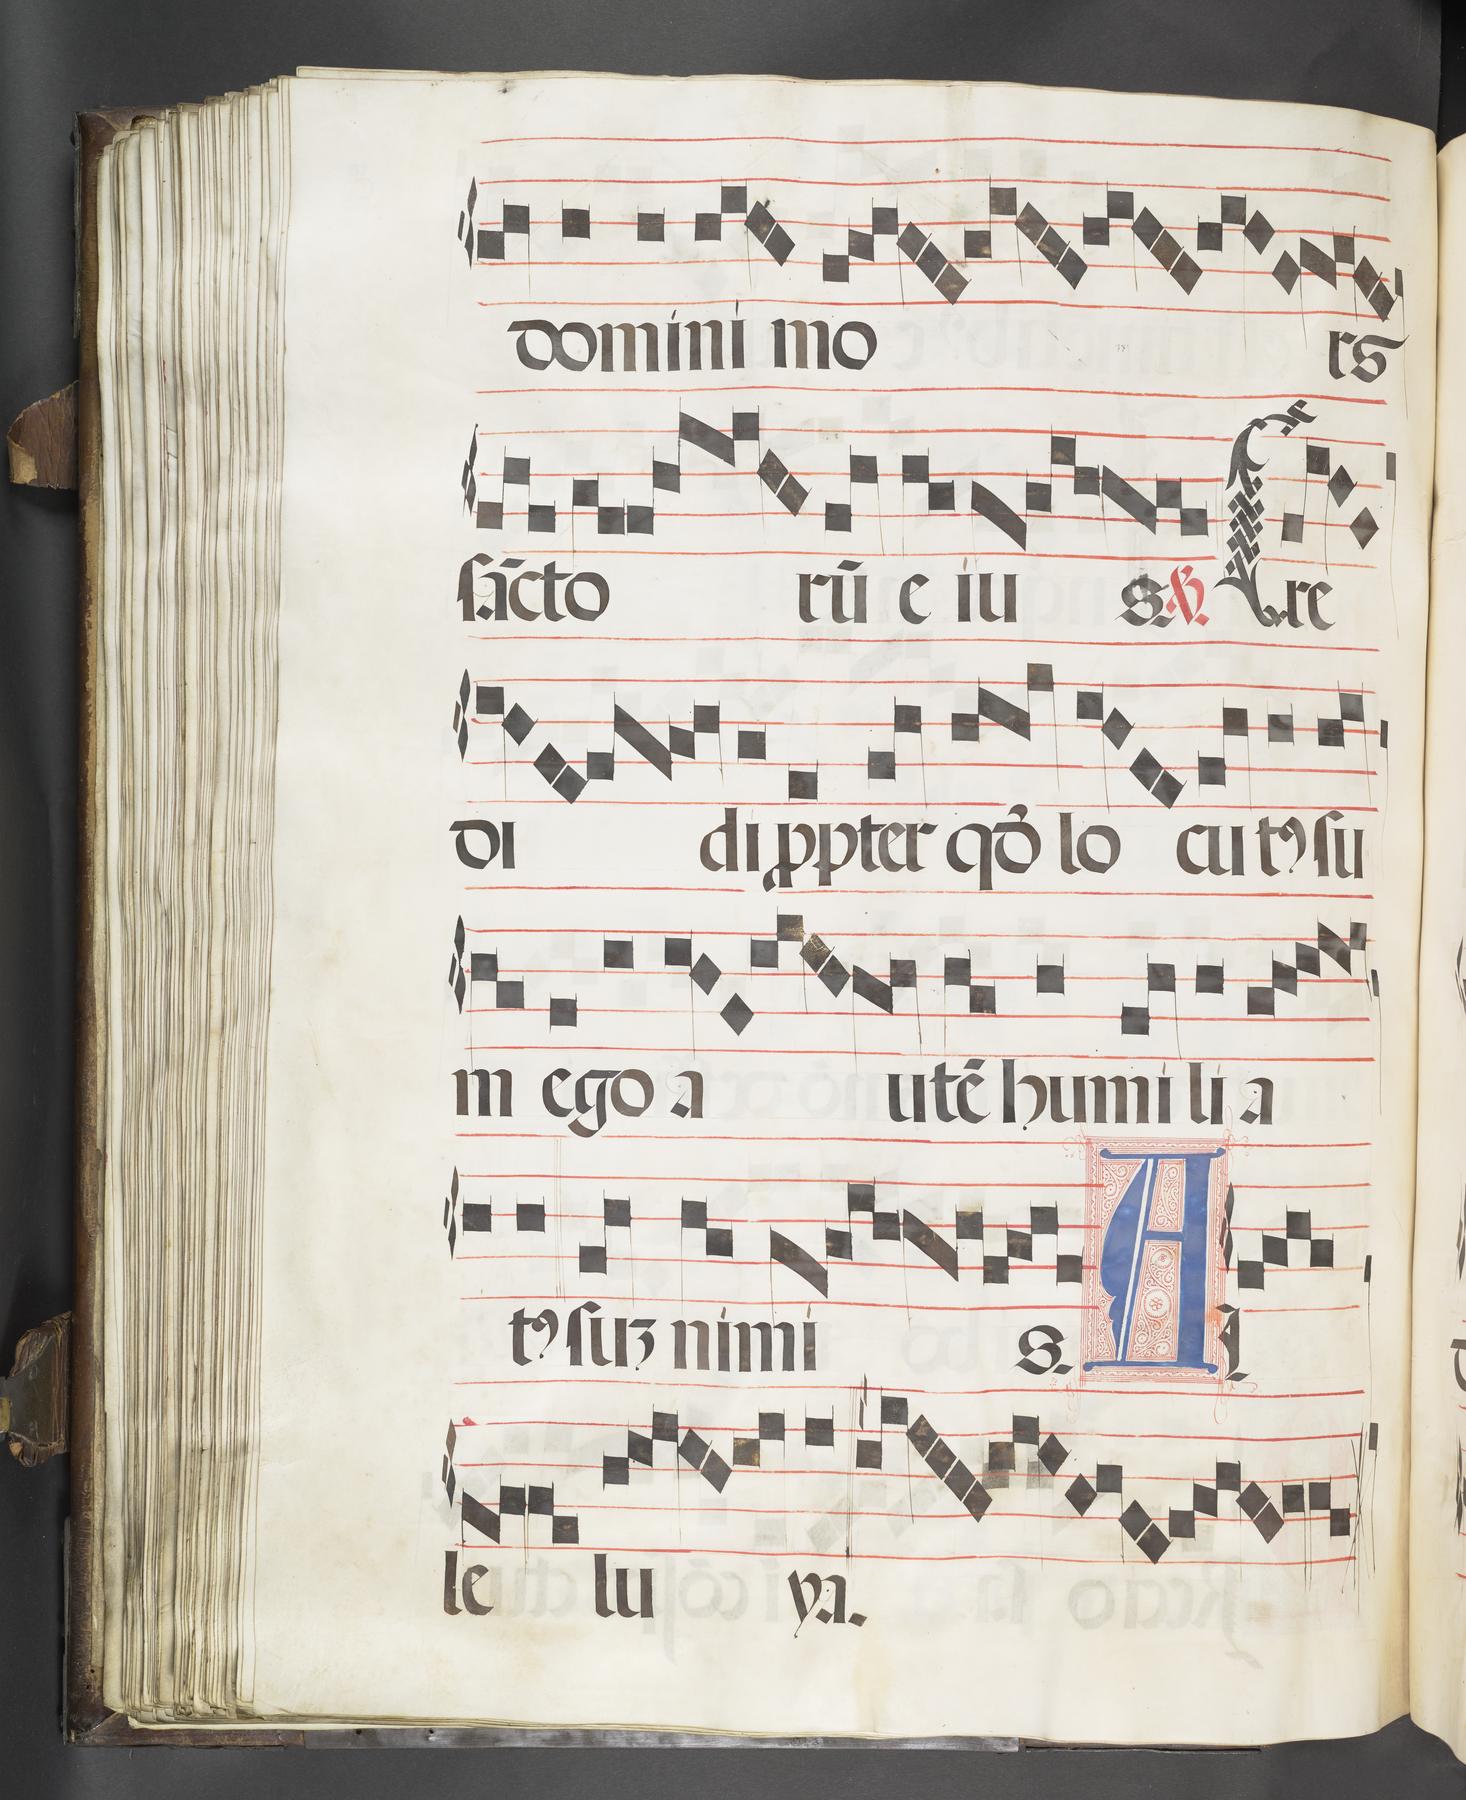 domini mo rs
sãcto rũ e iu s. ℣. Cre
di di ꝓpter qđ lo cu tꝰ su
m ego a utẽ humi li a
tꝰ suꝫ nimi s. A l
le lu ya.